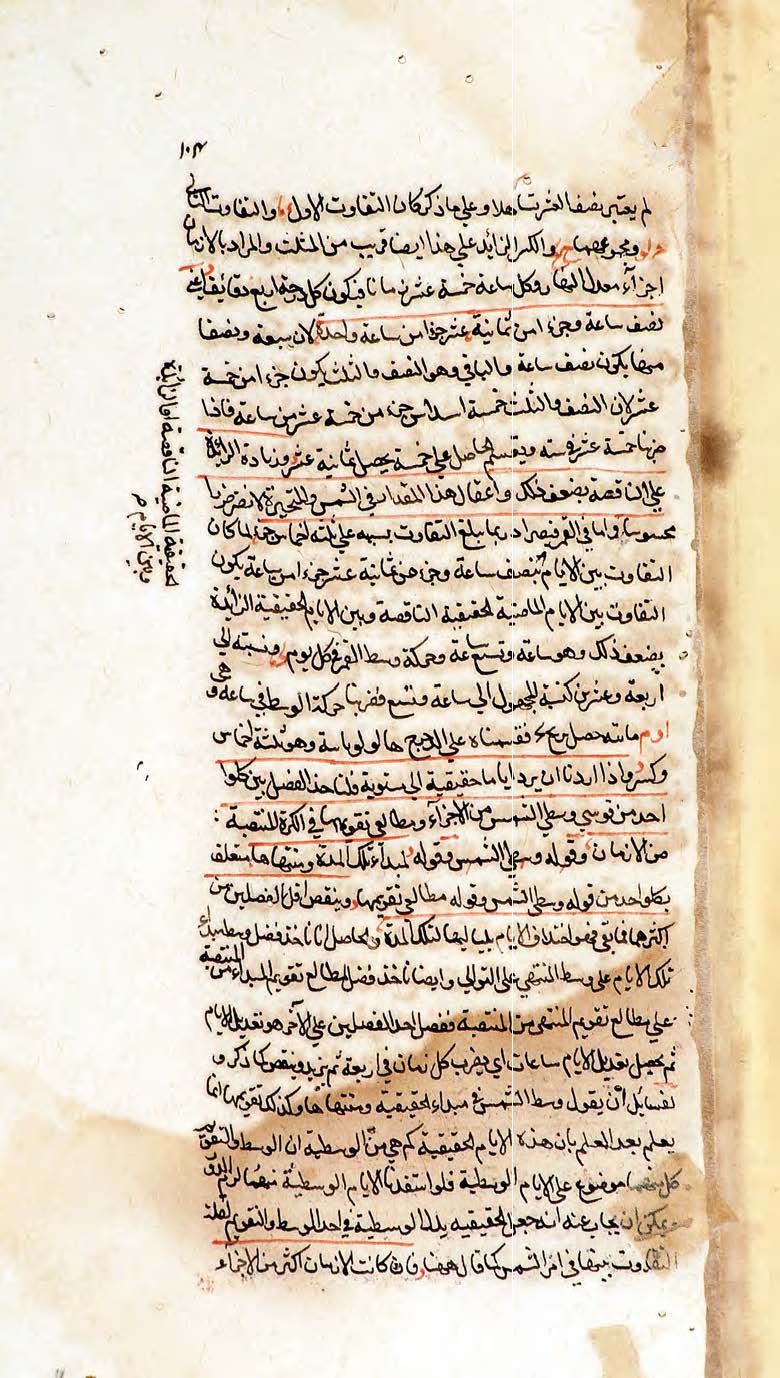 ١٠٣
لم يعتبر نصف العشر تساهلا وعلى ما ذكر كان التفاوت الاول والتفاوت الثاني
ومجموعهما والكسر الزائد على هذا ايضا قريب من المثلث والمراد بالازمان
اجزاء معدل النهار وكل ساعة خمسة عشر زمانا فيكون كل درجة اربع دقائق
نصف ساعة وجزء من ثمانية عشر جزءا من ساعة واحدة لان سبعة ونصفا
منها يكون نصف ساعة والباقي وهو النصف والثلث يكون جزءا من خمسة
عشر لان النصف والثلث خمسة اسداس جزء من خمسة عشر من ساعة فاذا
ضربنا خمسة عشر في ستة ويقسم الحاصل على خمسة يحصل ثمانية عشر وزيادة الزائدة
على الناقصة بضعف ذلك واغفال هذا المقدار في الشمس والمتحيرة لا تضر ضررا
محسوسا واما في القمر فيصير اد ربما يبلغ التفاوت بسببه على ثلثة اخماس جزء لما كان
التفاوت بين الايام نصف ساعة وجزء من ثمانية عشر جزءا من ساعة يكون
التفاوت بين الايام الماضية الحقيقية الناقصة وبين الايام الحقيقية الزائدة
بضعف ذلك وهو ساعة وتسع ساعة وحركة وسط القمر في كل يوم ونسبته الى
اربعة وعشرين كنسبة المجهول الى ساعة وتسع فضربنا حركة الوسط في ساعة و
حصل فقسمناه على وهو ثلثة اخماس
وكسر واذا اردنا ان يرد اياما حقيقية الى مستوية فلناخذ الفضل بين كلوا
احد من قوسي وسطى الشمس من الاجزاء ومطالعي تقويمها في الكرة المنتصبة
من الازمان وقوله وسطى الشمس وقوله لمبداء تلك المدة ومنتهاها متعلق
بكلواحد من قوله وسطى الشمس وقوله مطالعي تقويمها وينقص اقل الفضلين من
اكثرهما فما بقي فهو اختلاف الايام بلياليها لتلك المدة والحاصل انا ناخذ فضل وسط مبداء
تلك الايام على وسط المنتهى على التوالي وايضا ناخذ فضل مطالع تقويم المبداء من المنتصبة
على مطالع تقويم المنتهى من المنتصبة ففضل احد الفضلين على الآخر هو تعديل الايام
ثم يحصل تعديل الايام ساعات اي يضرب كل زمان في اربعة ثم يزيد وينقص كما ذكر و
لقائل أن يقول وسط الشمس في مبداء الحقيقية ومنتهاها وكذلك تقويمها انما
يعلم بعد العلم بان هذه الايام الحقيقية كم هي من الوسطية اذ الوسط والتقويم
كل منهما موضوع على الايام الوسطية فلو استفدنا الايام الوسطية منهما لزم الدور
ويمكن ان يجاب عنه انه جعل الحقيقيه بدل الوسطية في اخذ الوسط والتقويم لقلة
التفاوت بينهما في امر الشمس كما قال ههنا فان كانت الازمان اكثر من الاجزاء
الحقيقية الماضية الناقصة الزائدة
وبين الايام م